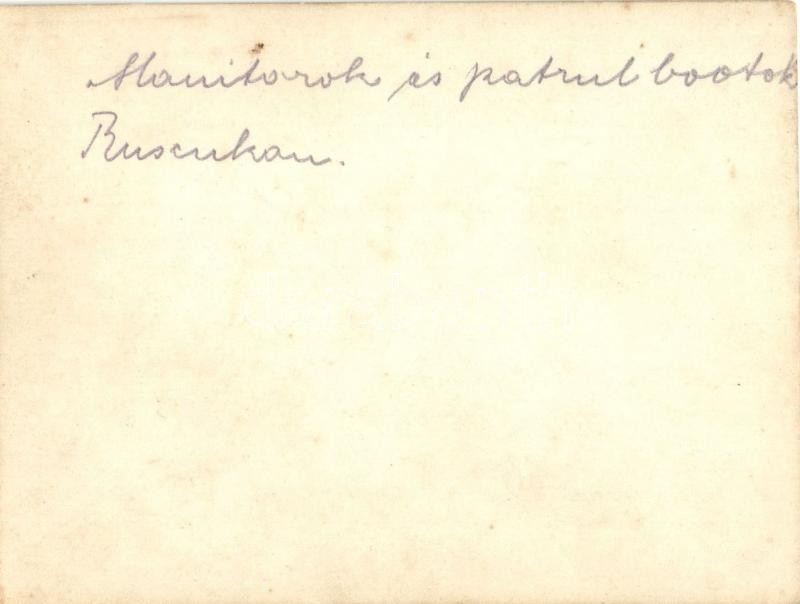 Monitorok és patrul bootok
Ruscukan.